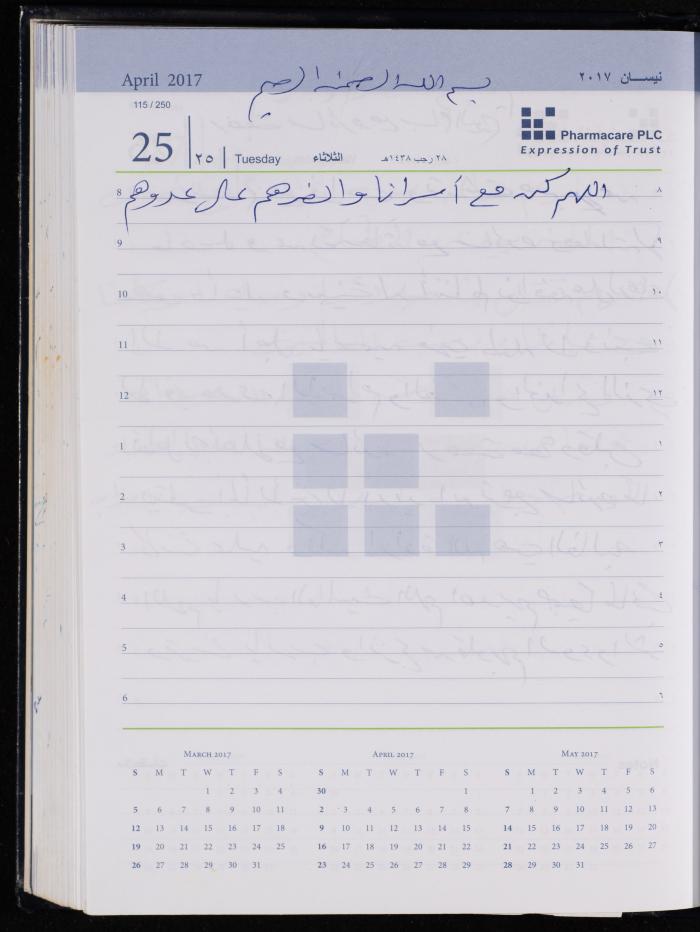 April 2017
بسم الله الرحمن الرحيم
نيسان ٢٠١٧
115 / 250
25
٢٥
Tuesday
الثلاثاء
٢٨ رجب ١٤٣٨هـ
Pharmacare PLC
Expression of Trust
8 اللهم كن مع أسرانا وانصرهم على عدوهم ٨
9 ٩
10 ١٠
11 ١١
12 ١٢
1 ١
2 ٢
3 ٣
4 ٤
5 ٥
6 ٦
March 2017
S M T W T F S
1 2 3 4
5 6 7 8 9 10 11
12 13 14 15 16 17 18
19 20 21 22 23 24 25
26 27 28 29 30 31
April 2017
S M T W T F S
30 1
2 3 4 5 6 7 8
9 10 11 12 13 14 15
16 17 18 19 20 21 22
23 24 25 26 27 28 29
May 2017
S M T W T F S
1 2 3 4 5 6
7 8 9 10 11 12 13
14 15 16 17 18 19 20
21 22 23 24 25 26 27
28 29 30 31